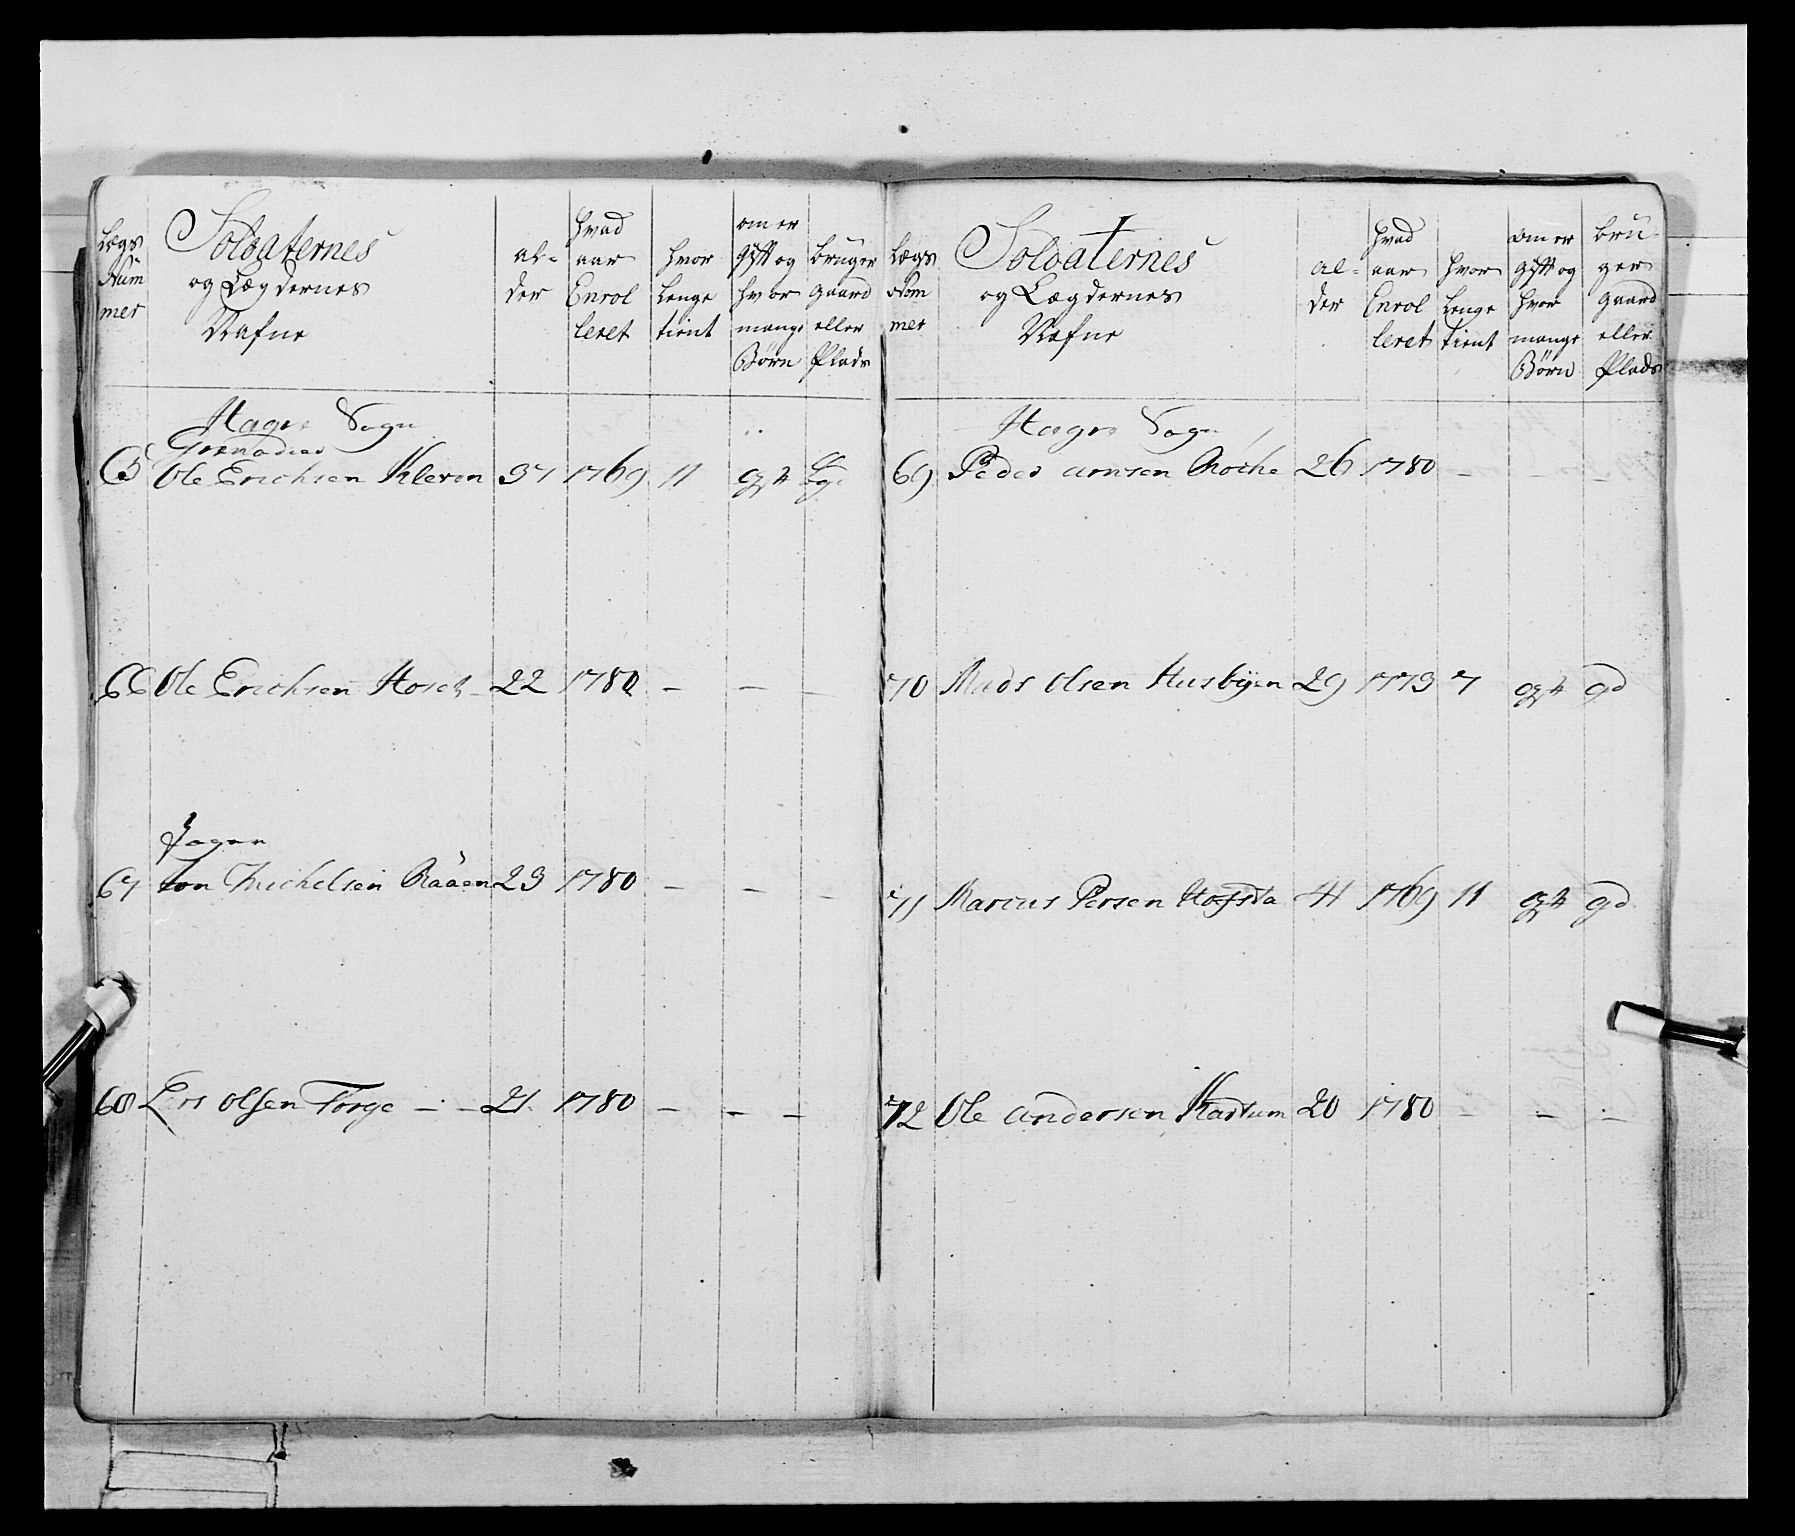 Lægs Num mer | Soldaternes og Lægdernes Nafne | al- der | hvad aar Enrol leret | hvor Lenge tient | om er gift og hvor mange Børn | bruger gaard eller Plads
Hagre Sogn
Grenadeer
65 Ole Erichsen Kleven 37 1769 11 gift
66 Ole Erichsen 22 1780 - - -
Jager
67 Jon Michelsen Raaen 23 1780 - - -
68 Ers olsen Forge - - 21 1780 - - -
Lægs Nom mer | Soldaternes og Lægdernes Næfne | al- der | hvad aar Enrol leret | hvor Lenge tient | om er gift og hvor mange Børn | bru ger gaard eller Plads
Hagre Sogn
69 Peder arnsen 26 1780 - - -
70 Mads olsen Husbyen 29 1773 7 gift gd
71 Marcus Persen Hofsta 41 1769 11 gift gd
72 Ole andersen 20 1780 - - -